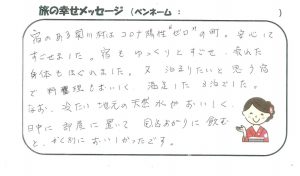 旅の幸せメッセージ（ペンネーム：　　　　　）
宿のある菊川村はコロナ陽性"ゼロ"の町。安心して
すごせました。宿もゆっくりとすごせ、疲れた
身体もほぐれました。又泊まりたいと思う宿
で料理もおいしく、満足した3泊でした。
なお、冷たい地元の天然水がおいしく、
日中に部屋に置いて風呂あがりに飲む
と、かくべつにおいしかったです。